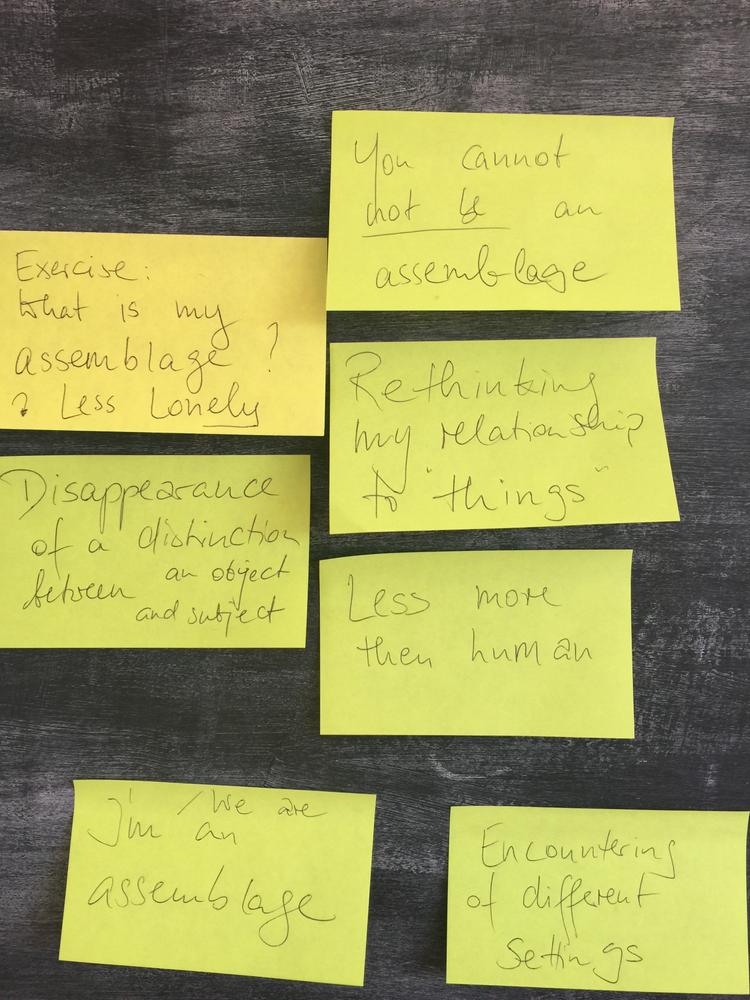 You cannot
not be an
assemblage
Exercise:
What is my
assemblage ?
? Less Lonely
Rethinking
my relationship
to "things"
Disappearance
of a distinction
between an object
and subject
Less more
then human
I'm / We are
an
assemblage
Encountering
of different
Settings